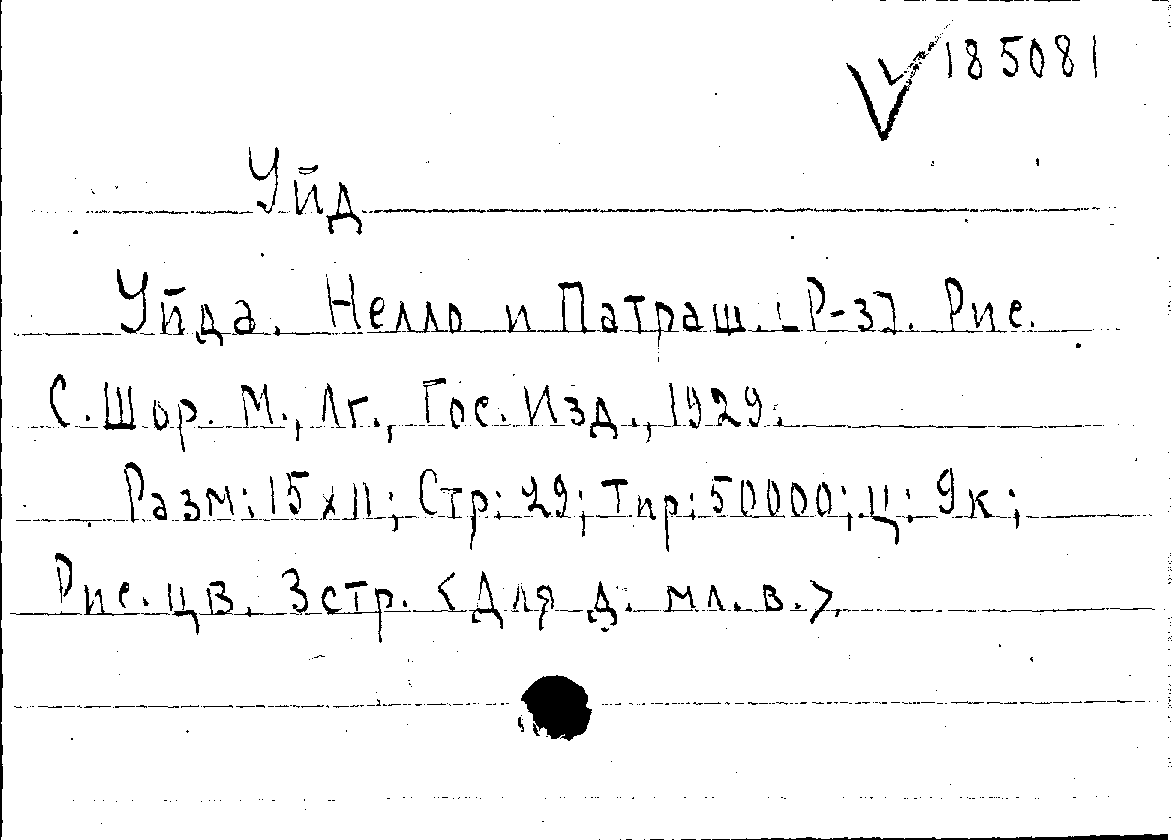 185081
Уйд
Уйда. Нелло и Патраш. [Р-з]. Рис.
С. Шор. М., Лг., Гос. Изд., 1929.
Разм: 15 x 11; Стр: 29; Тир: 50000; Ц: 9к;
Рис. цв. 3 стр. <Для д. мл. в.>.